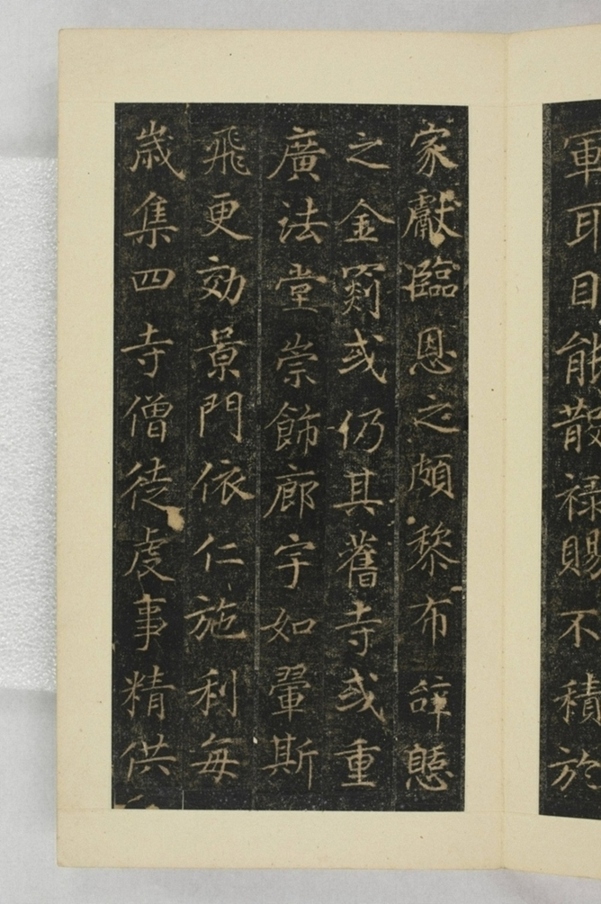 軍耳目能散祿賜不積於
家獻臨恩之頗黎布辝憇
之金罽或仍其舊寺或重
廣法堂崇飾廊宇如翬斯
飛更効景門依仁施利每
歲集四寺僧徒虔事精供